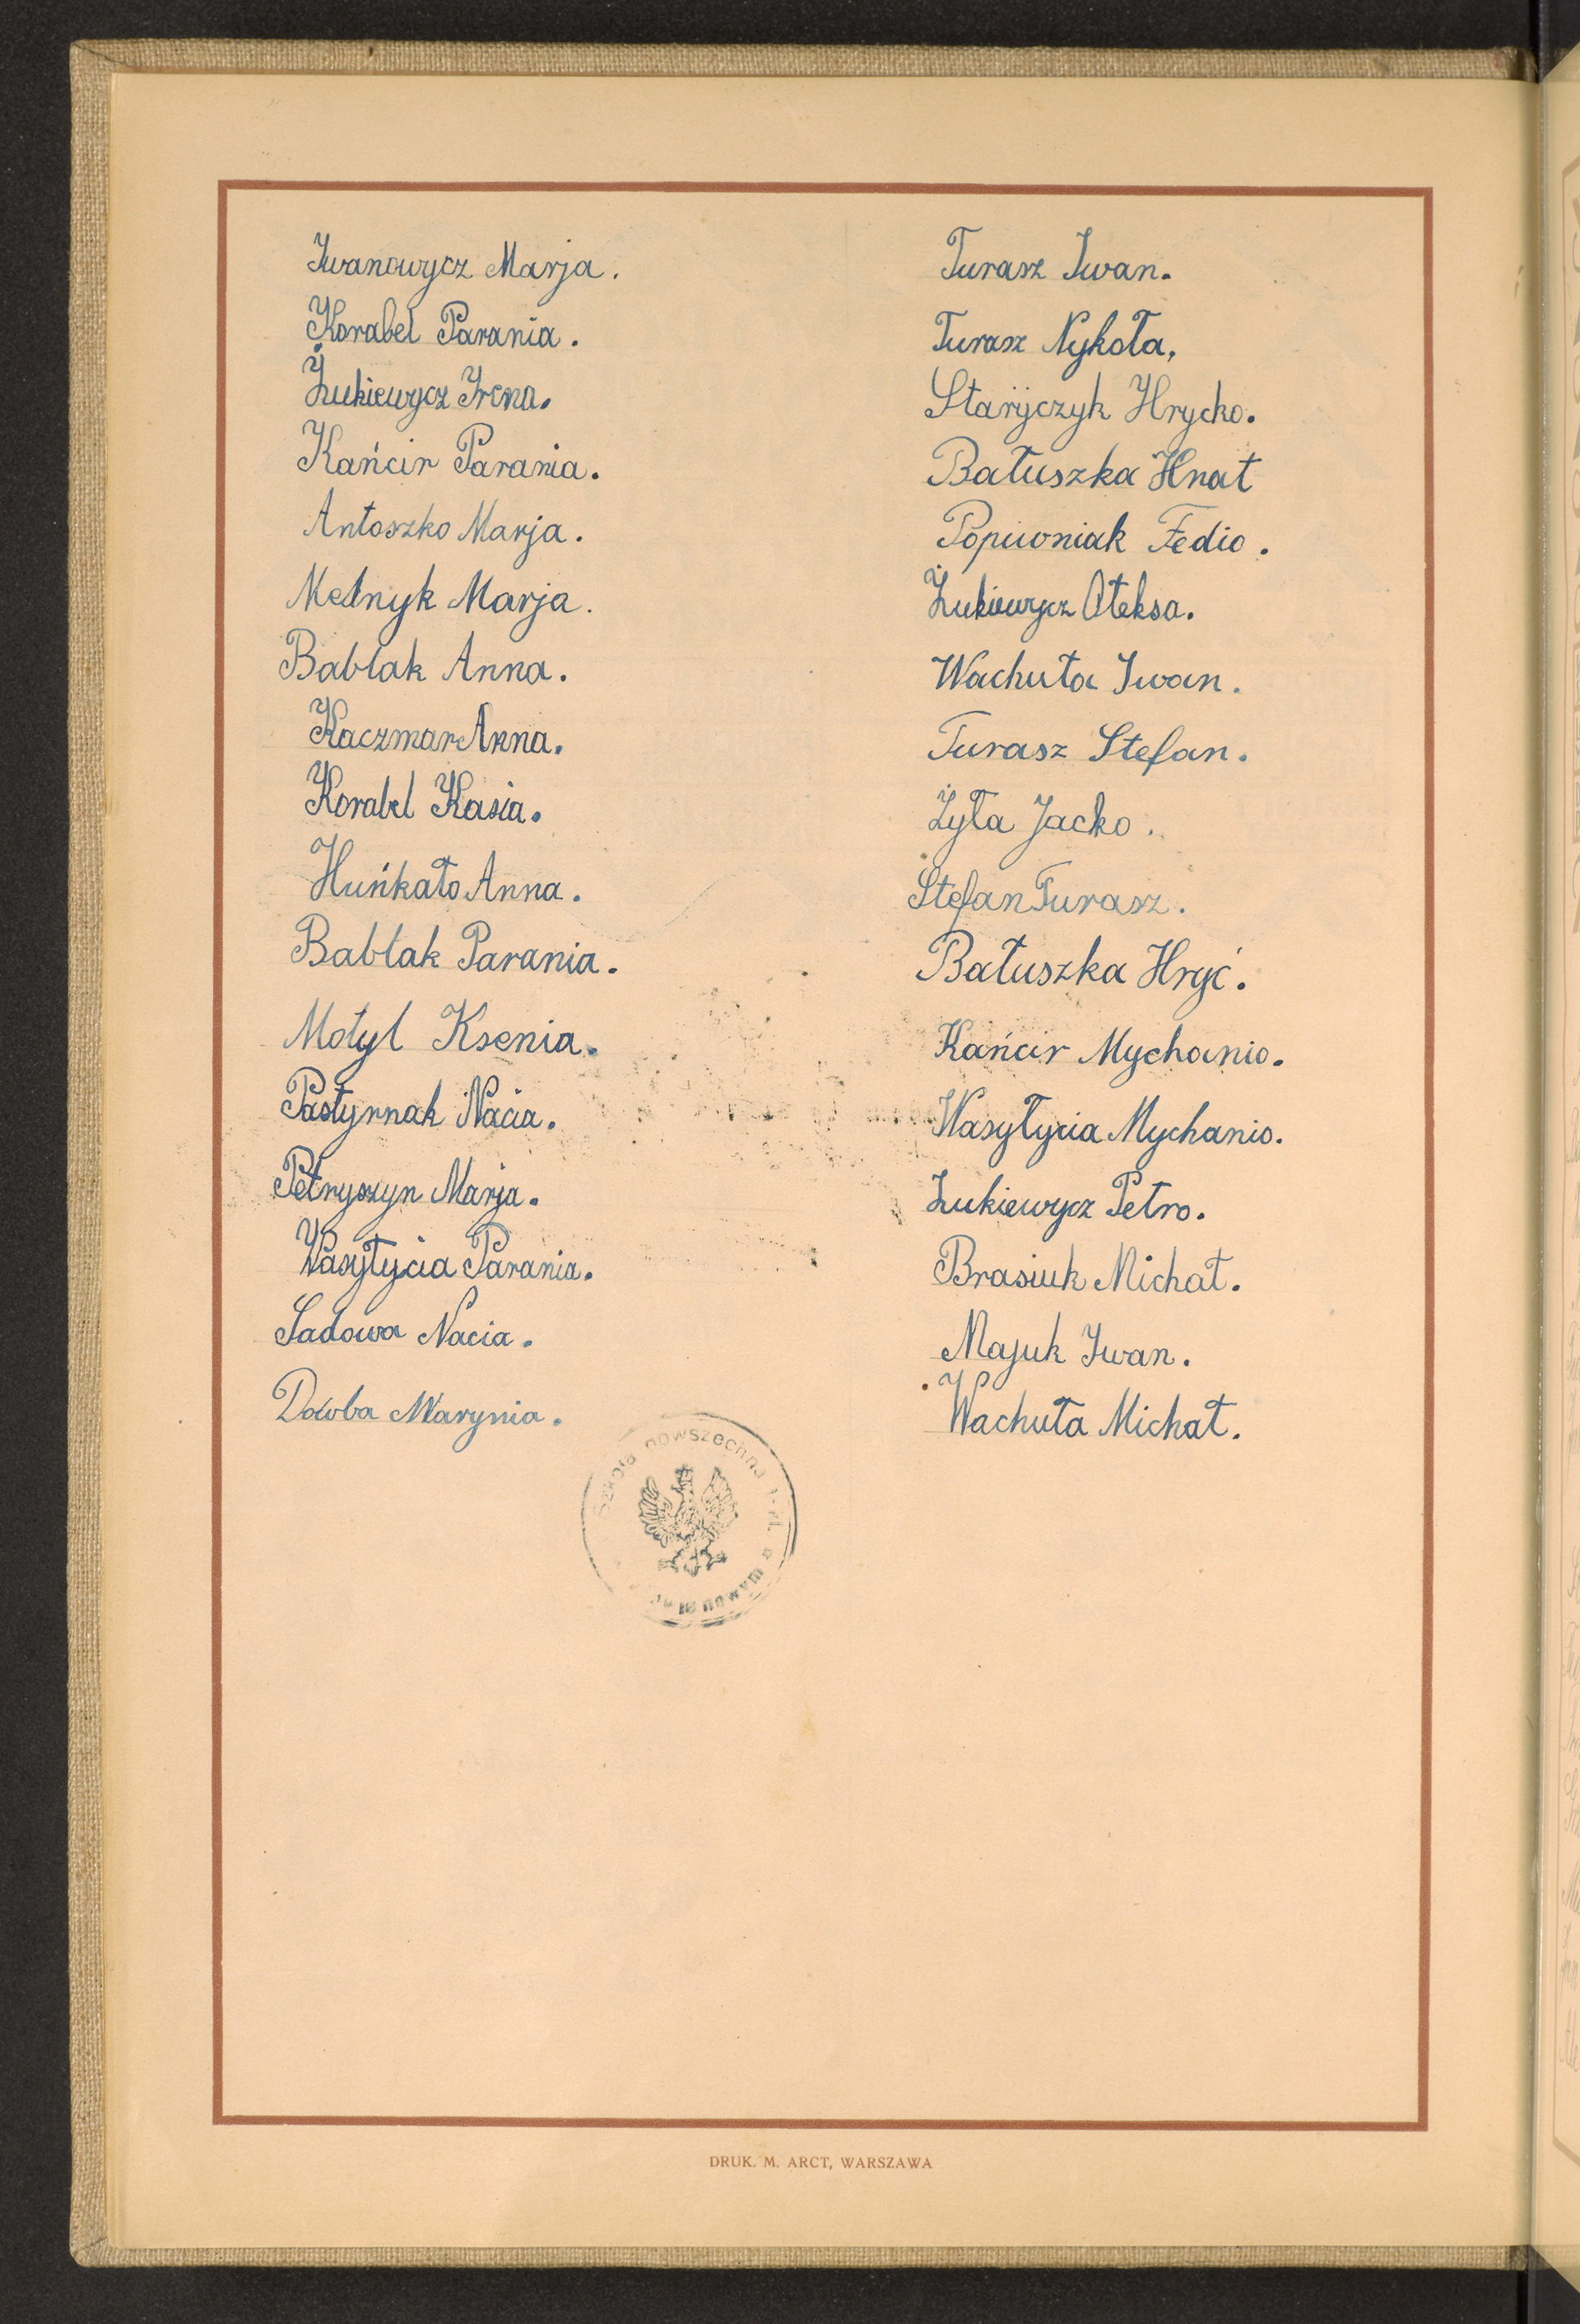 Iwanowycz Marja.
Korabel Parania.
Żukiewycz Irena.
Kańcir Parania.
Antoszko Marja.
Melnyk Marja.
Bablak Anna.
Kaczmar Anna.
Korabel Kasia.
Huńkało Anna.
Babłak Parania.
Motyl Ksenia.
Pastyrnak Nacia.
Petryszyn Marja.
Wasyłycia Parania.
Sadowa Nacia.
Dowba Marynia.
Turasz Iwan.
Turasz Nykoła,
Staryjczyk Hrycko.
Bałuszka Hnat
Popiwniak Fedio.
Żukiewycz Ołeksa.
Wachuła Iwan.
Turasz Stefan.
Żyła Jacko.
Stefan Turasz.
Bałuszka Hryć.
Kańcir Mychanio.
Wasyłycia Mychanio.
Żukiewycz Petro.
Brasiuk Michał.
Majuk Iwan.
Wachuła Michał.
Szkoła powszechna
DRUK. M. ARCT, WARSZAWA